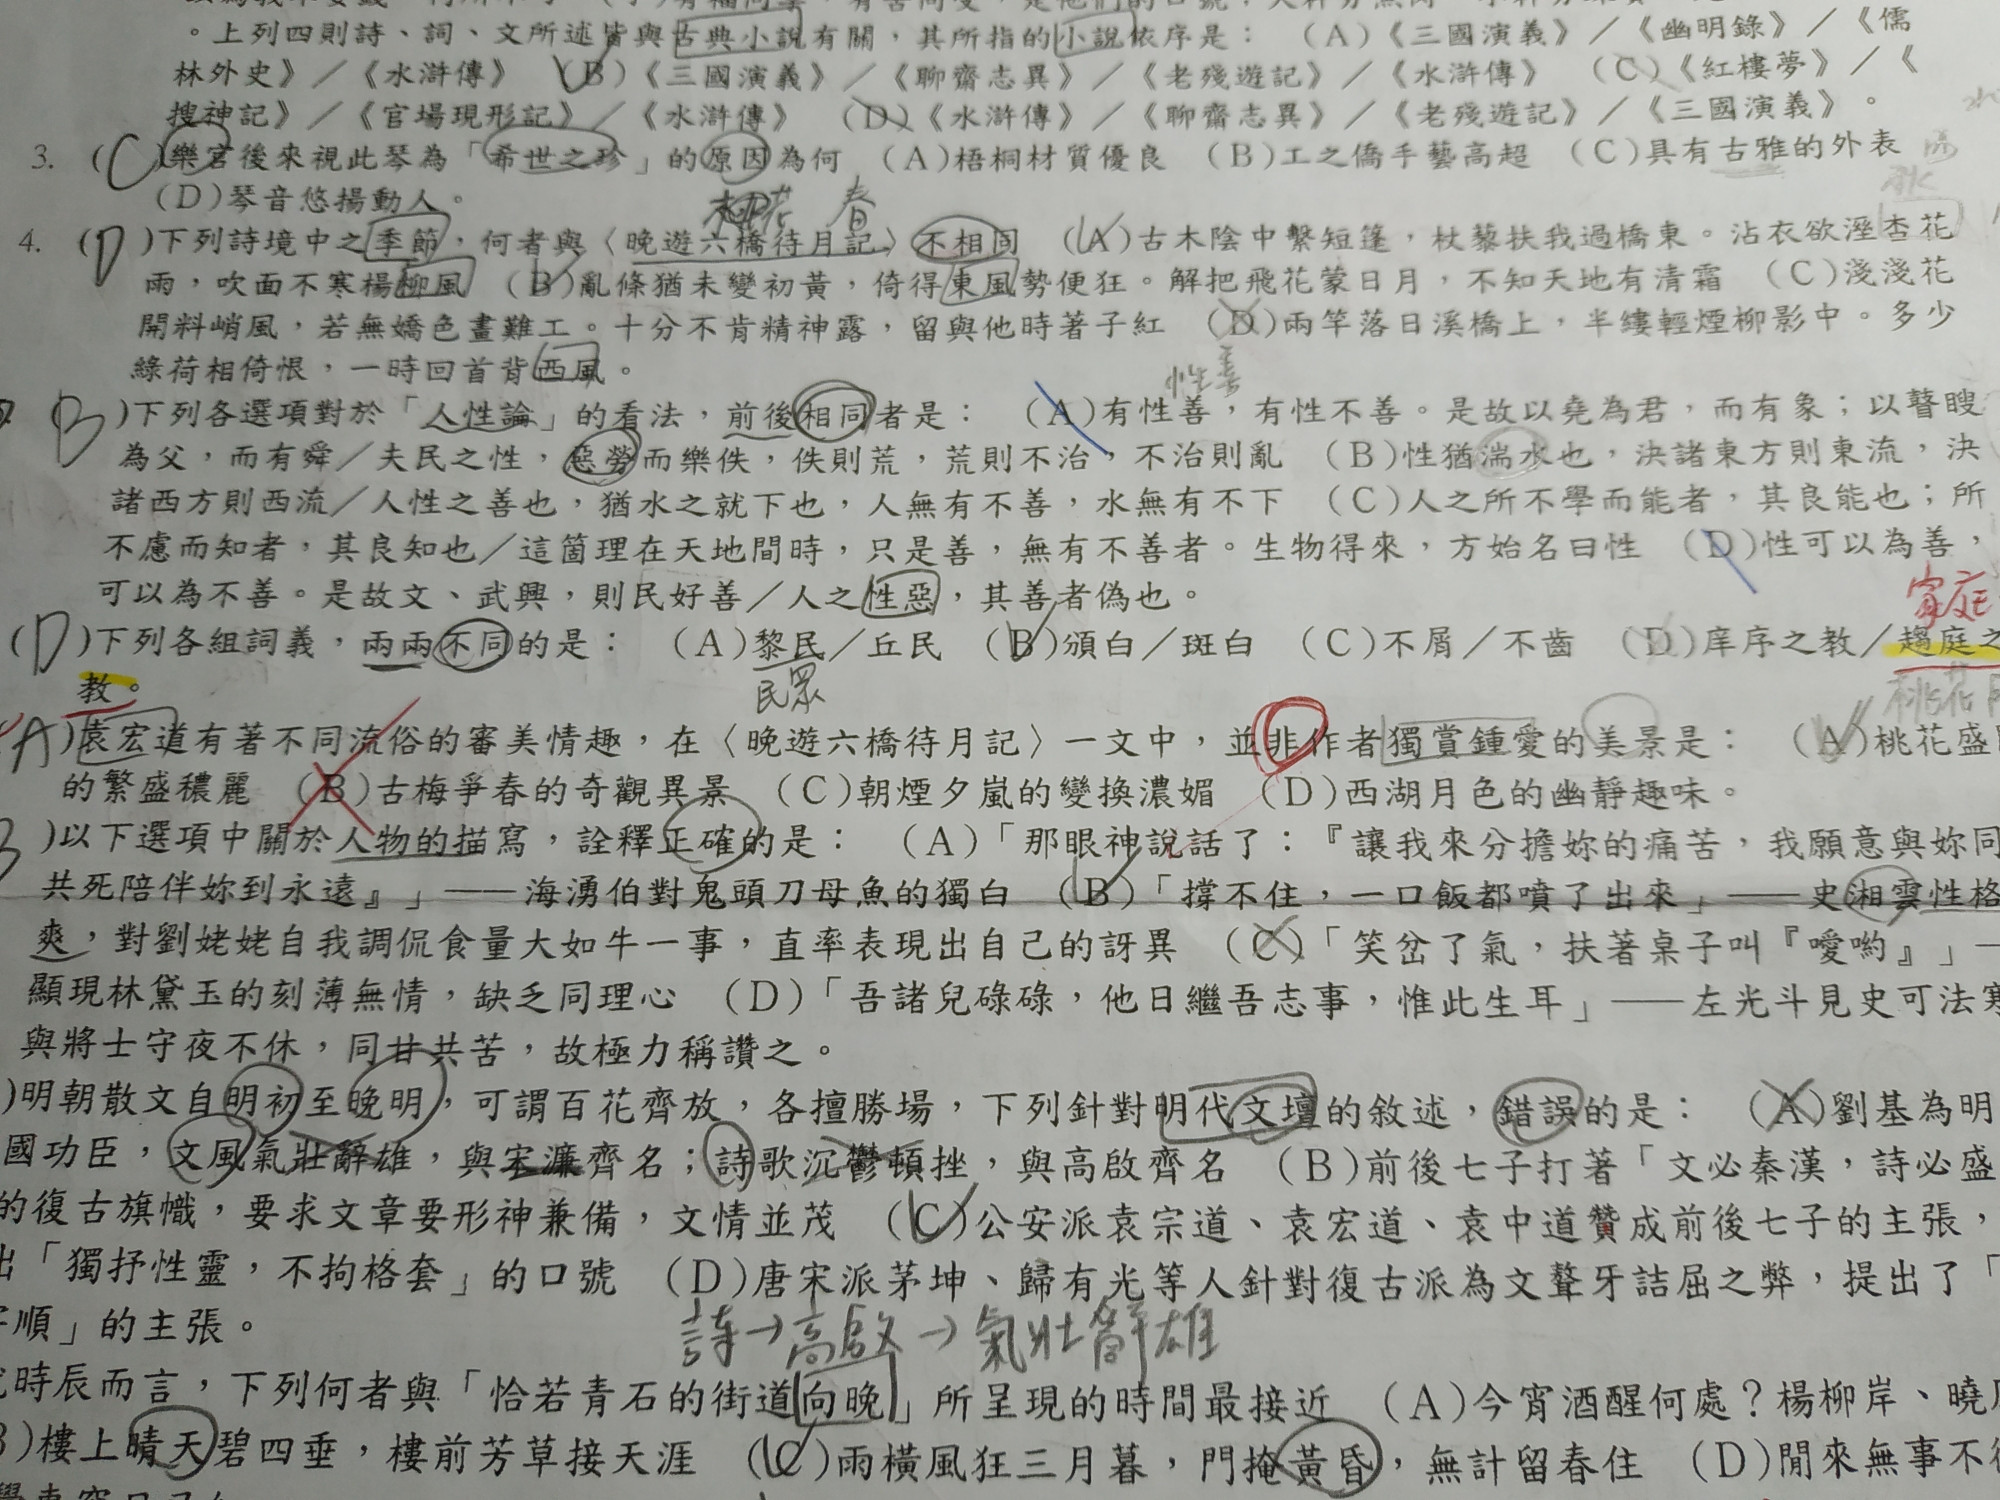 。上列四則詩、詞、文所述皆與古典小說有關，其所指的小說依序是： (A)《三國演義》／《幽明錄》／《儒
林外史》／《水滸傳》 (B)《三國演義》／《聊齋志異》／《老殘遊記》／《水滸傳》 (C)《紅樓夢》／《
搜神記》／《官場現形記》／《水滸傳》 (D)《水滸傳》／《聊齋志異》／《老殘遊記》／《三國演義》。
3. (C)樂官後來視此琴為「希世之珍」的原因為何 (A)梧桐材質優良 (B)工之僑手藝高超 (C)具有古雅的外表
(D)琴音悠揚動人。
桃花 春
4. (D)下列詩境中之季節，何者與〈晚遊六橋待月記〉不相同 (A)古木陰中繫短篷，杖藜扶我過橋東。沾衣欲溼杏花
雨，吹面不寒楊柳風 (B)亂條猶未變初黃，倚得東風勢便狂。解把飛花蒙日月，不知天地有清霜 (C)淺淺花
開料峭風，若無嬌色畫難工。十分不肯精神露，留與他時著子紅 (D)兩竿落日溪橋上，半縷輕煙柳影中。多少
綠荷相倚恨，一時回首背西風。
性善
B)下列各選項對於「人性論」的看法，前後相同者是： (A)有性善，有性不善。是故以堯為君，而有象；以瞽瞍
為父，而有舜／夫民之性，惡勞而樂佚，佚則荒，荒則不治，不治則亂 (B)性猶湍水也，決諸東方則東流，決
諸西方則西流／人性之善也，猶水之就下也，人無有不善，水無有不下 (C)人之所不學而能者，其良能也；所
不慮而知者，其良知也／這箇理在天地間時，只是善，無有不善者。生物得來，方始名曰性 (D)性可以為善，
可以為不善。是故文、武興，則民好善／人之性惡，其善者偽也。
家庭
(D)下列各組詞義，兩兩不同的是： (A)黎民／丘民 (B)頒白／斑白 (C)不屑／不齒 (D)庠序之教／趨庭之
教。
民眾
桃花
A)袁宏道有著不同流俗的審美情趣，在〈晚遊六橋待月記〉一文中，並非作者獨賞鍾愛的美景是： (A)桃花盛
的繁盛穠麗 (B)古梅爭春的奇觀異景 (C)朝煙夕嵐的變換濃媚 (D)西湖月色的幽靜趣味。
)以下選項中關於人物的描寫，詮釋正確的是： (A)「那眼神說話了：『讓我來分擔妳的痛苦，我願意與妳同
共死陪伴妳到永遠』」——海湧伯對鬼頭刀母魚的獨白 (B)「撐不住，一口飯都噴了出來」——史湘雲性格
爽，對劉姥姥自我調侃食量大如牛一事，直率表現出自己的訝異 (C)「笑岔了氣，扶著桌子叫『噯喲』」—
顯現林黛玉的刻薄無情，缺乏同理心 (D)「吾諸兒碌碌，他日繼吾志事，惟此生耳」——左光斗見史可法寒
與將士守夜不休，同甘共苦，故極力稱讚之。
)明朝散文自明初至晚明，可謂百花齊放，各擅勝場，下列針對明代文壇的敘述，錯誤的是： (A)劉基為明
國功臣，文風氣壯辭雄，與宋濂齊名；詩歌沉鬱頓挫，與高啟齊名 (B)前後七子打著「文必秦漢，詩必盛
的復古旗幟，要求文章要形神兼備，文情並茂 (C)公安派袁宗道、袁宏道、袁中道贊成前後七子的主張，
出「獨抒性靈，不拘格套」的口號 (D)唐宋派茅坤、歸有光等人針對復古派為文聱牙詰屈之弊，提出了「
字順」的主張。
詩→高啟→氣壯辭雄
時辰而言，下列何者與「恰若青石的街道向晚」所呈現的時間最接近 (A)今宵酒醒何處？楊柳岸、曉
)樓上晴天碧四垂，樓前芳草接天涯 (C)雨橫風狂三月暮，門掩黃昏，無計留春住 (D)閒來無事不